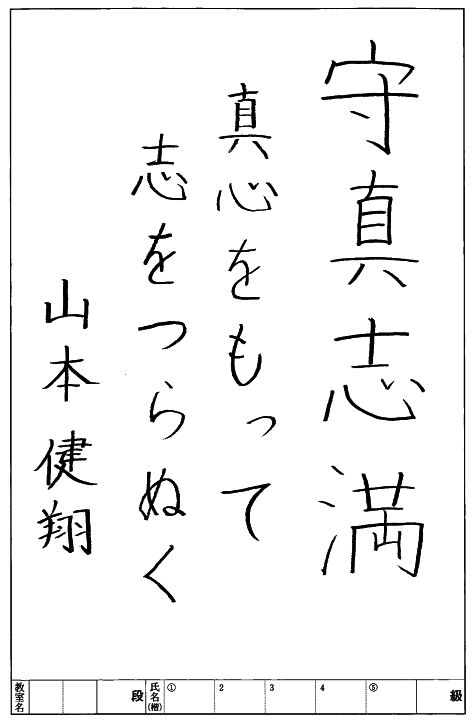 守真志満
真心をもって
志をつらぬく
山本健翔
級 ⑤ 4 3 2 ① 氏名(楷) 段 教室名